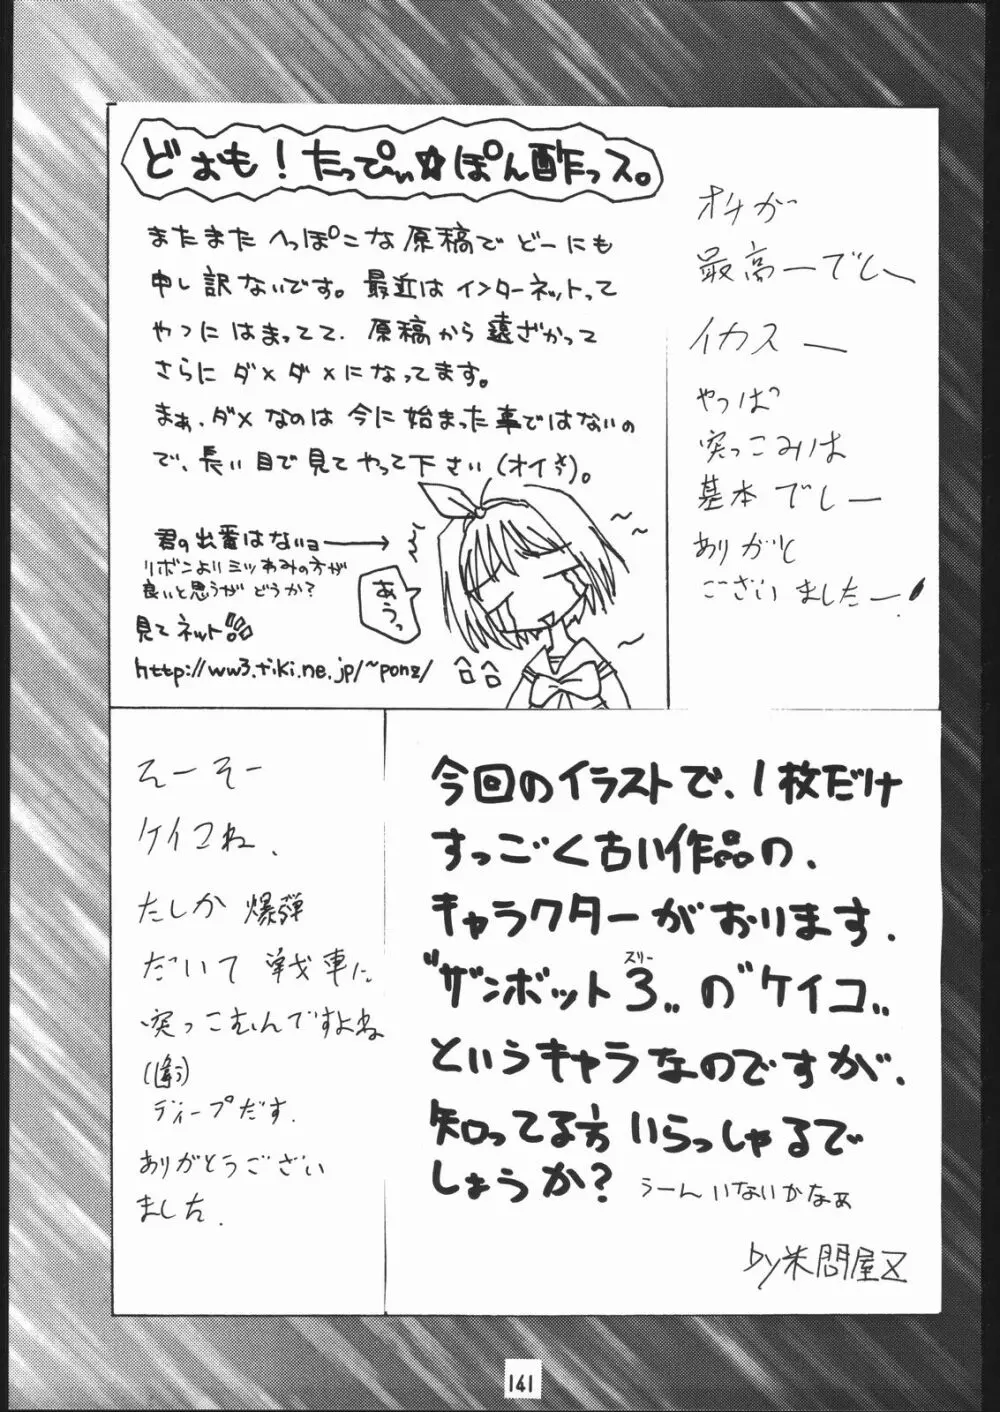 どぉも!たっぴぃ☆ぽん酢っス。
またまた へっぽこな 原稿で どーにも
申し訳ないです。最近は インターネットって
やつに はまってて、原稿から 遠ざかって
さらに ダメダメになってます。
まぁ、ダメなのは 今に始まった事ではないの
で、長い目で見てやって下さい(オイ
君の出番はないヨ
リボンより ミツあみの方が
良いと思うが どうか?
あぅっ
見てネット
http://ww3.tiki.ne.jp/~ponz/
オチが
最高ーでしー
イカスー
やっぱっ
突っこみは
基本でしー
ありがと
ございましたー!
そーそー
ケイコね、
たしか 爆弾
だいて 戦車に
突っこむんですよね
(違う)
ディープだす.
ありがとうござい
ました.
今回のイラストで、1枚だけ
すっごく古い作品の、
キャラクターがおります.
スリー
"ザンボット3"の"ケイコ"
というキャラなのですが、
知ってる方 いらっしゃるで
しょうか? うーん いないかなぁ
by 米問屋Z
141